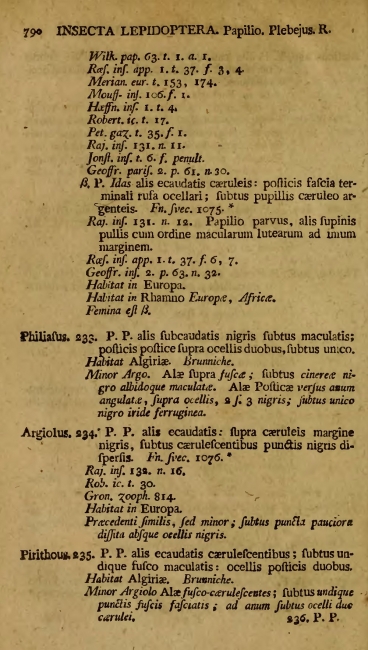 790 INSECTA LEPIDOPTERA. Papilio. Plebejus. R.
Wilk. pap. 63. t. 1. a. 1.
Rœſ. inſ. app. 1. t. 37. f. 3, 4.
Merian. eur. t. 153, 174.
Mouff. inſ. 106. f. 1.
Hæffn. inſ. 1. t. 4.
Robert. ic. t. 17.
Pet. gaz. t. 35. f. 1.
Raj. inſ. 131. n. 11.
Jonſt. inſ. t. 6. f. penult.
Geoffr. pariſ. 2. p. 61. n. 30.
β. P. Idas alis ecaudatis cæruleis: poſticis faſcia ter-
minali rufa ocellari; ſubtus pupillis cæruleo ar-
genteis. Fn. ſvec. 1075. *
Raj. inſ. 131. n. 12. Papilio parvus, alis ſupinis
pullis cum ordine macularum lutearum ad imum
marginem.
Rœſ. inſ. app. 1. t. 37. f. 6, 7.
Geoffr. inſ. 2. p. 63. n. 32.
Habitat in Europa.
Habitat in Rhamno Europæ, Africæ.
Femina eſt β.
Philiaſus. 233. P. P. alis ſubcaudatis nigris ſubtus maculatis;
poſticis poſtice ſupra ocellis duobus, ſubtus unico.
Habitat Algiriæ. Brunniche.
Minor Argo. Alæ ſupra fuſcæ; ſubtus cinereæ ni-
gro albidoque maculatæ. Alæ Poſticæ verſus anum
angulatæ, ſupra ocellis, 2 ſ. 3 nigris; ſubtus unico
nigro iride ferruginea.
Argiolus. 234. P. P. alis ecaudatis: ſupra cæruleis margine
nigris, ſubtus cæruleſcentibus punctis nigris di-
ſperſis. Fn. ſvec. 1076. *
Raj. inſ. 132. n. 16.
Rob. ic. t. 30.
Gron. zooph. 814.
Habitat in Europa.
Præcedenti ſimilis, ſed minor; ſubtus puncta pauciora
diſſita absque ocellis nigris.
Pirithous. 235. P. P. alis ecaudatis cæruleſcentibus; ſubtus un-
dique fuſco maculatis: ocellis poſticis duobus.
Habitat Algiriæ. Brunniche.
Minor Argiolo Alæ fuſco-cæruleſcentes; ſubtus undique
punctis fuſcis faſciatis; ad anum ſubtus ocelli duo
cærulei. 236. P. P.